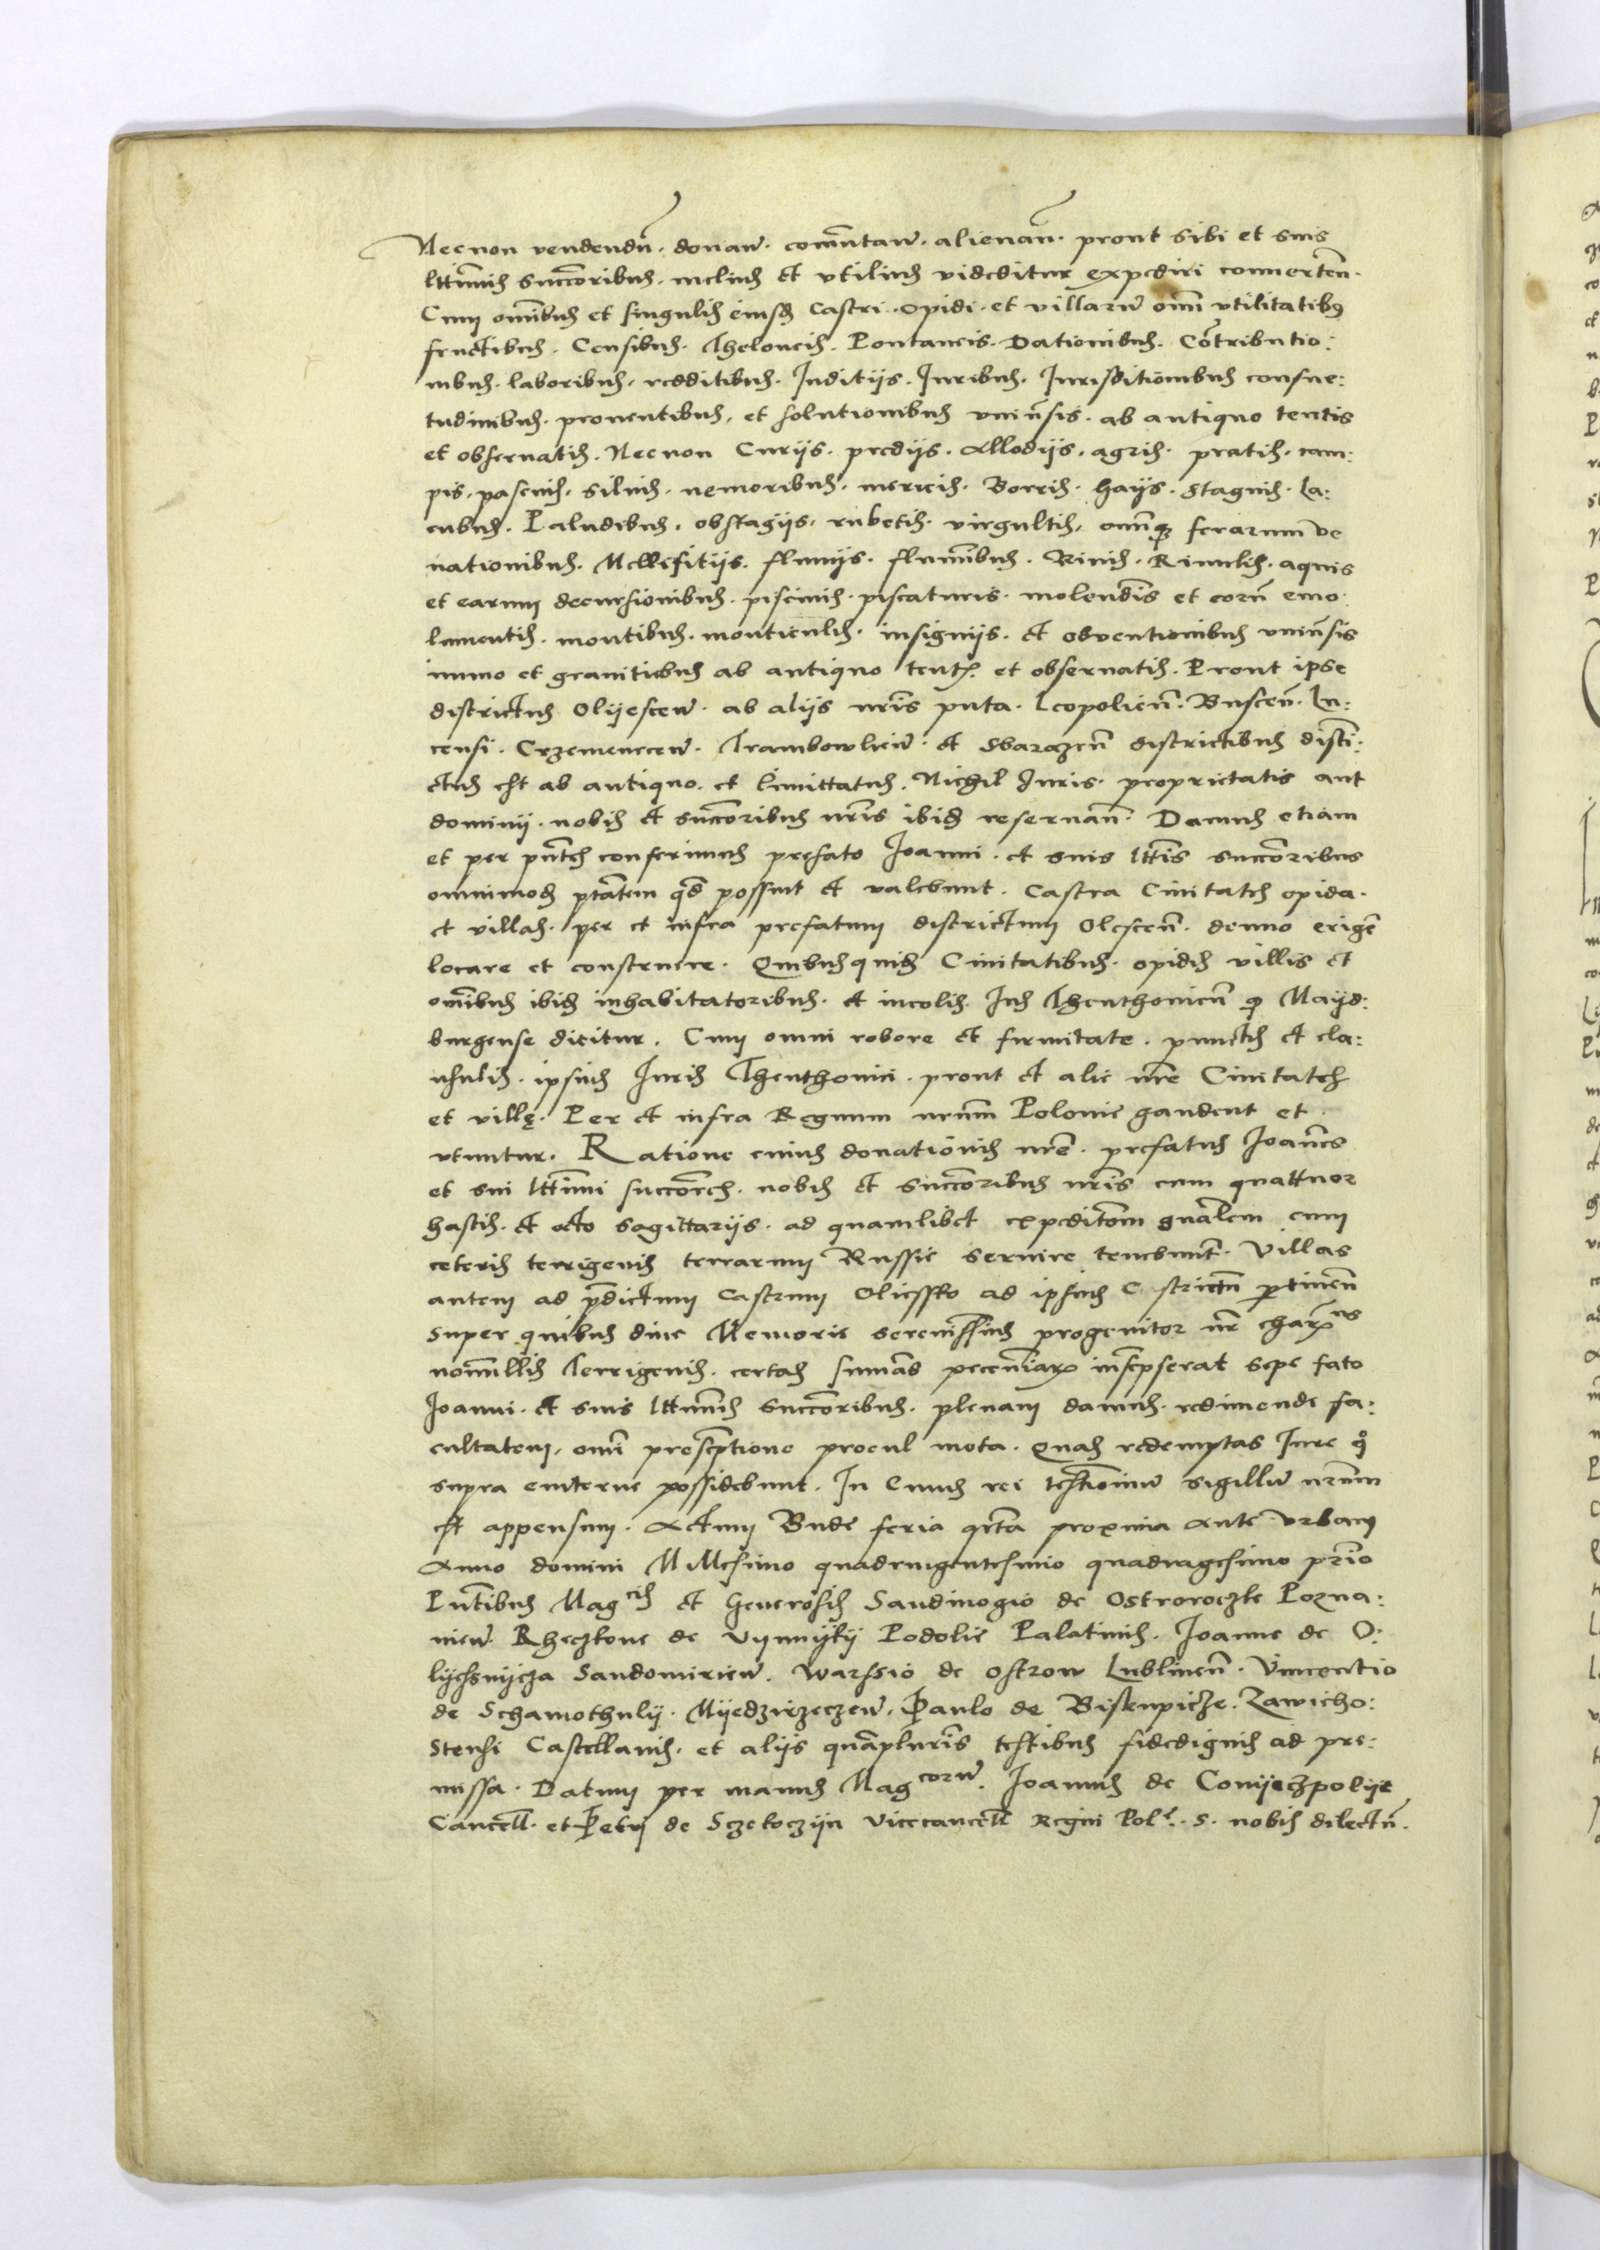 Necnon vendendū. donan̄. com̄utan̄. alienan̄. prout sibi et suis
lttimis succ̄oribus. melius et vtilius videbitur expediri conuerten̄.
Cum om̄ibus et singulis eiusd̄ castri. Opidi. et villarū om̄i vtilitatibꝰ
fructibus. Censibus. Theloneis. Pontaneis. Dationibus. Cōtributio:
nibus. laboribus. redditibus. Inditijs. Iuribus. Iurisditiōnibus consue:
tudinibus. prouentibus. et solutionibus vniu̅sis. ab antiquo tentis
et obseruatis. Necnon Curijs. predijs. Allodijs. agris. pratis. cam:
pis. pascuis. siluis. nemoribus. mericis. Borris. Gajis. Stagnis. la:
cubus. Paludibus. obstagijs. rubetis. virgultis. om̄iqꝫ ferarum ve
nationibus. Mellefitijs. fluuijs. flum̄ibus. Riuis. Riuulis. aquis
et earum decursionibus. piscinis. piscaturis. molend̄is et eorū emo:
lumentis. montibus. monticulis. insignijs. et obventionibus vniu̅sis
immo et granitiebus ab antiquo tentꝭ. et obseruatis. Prout ipse
districtus Olijescen̄. ab alijs nr̄is puta. Leopolien̄. Buscen̄. Lu:
censi. Crzemenecen̄. Trambowlien̄. et Sbarazen̄ districtibus disti:
ctus est ab antiquo. et limittatus. Nichil Iuris. proprietatis aut
dominij. nobis et succ̄oribus nr̄is ibid̄ reseruan̄. Damus etiam
et per pn̄tes conferimus prefato Ioanni. et suis ltt̄is succ̄oribus
omnimod̄ ptātem qd̄ possint et valebunt. Castra Ciuitates opida.
et villas. per et infra prefatum districtum Olescen̄. denuo eriger̄
locare et construere. Quibusquid̄ Ciuitatibus. opidis villis et
om̄ibus ibid̄ inhabitatoribus. et incolis. Ius Theuthonicū ꝙ Mayd:
burgense dicitur. Cum omni robore et firmitate. punctis et cla:
usulis. ipsius Iuris Theuthonici. prout et alie nr̄e Ciuitates
et villę. Per et infra Regnum nr̄um Polonie gaudent et.
vtuntur. Ratione cuius donationis nr̄e. prefatus Ioan̄es
et sui lttimi succ̄ores. nobis et succ̄oribus nr̄is cum quattuor
hastis. et octo sagittarijs. ad quamlibet expedit̄om gn̄alem cum
ceteris terrigenis terrarum Russie seruire tenebunt̄. Villas
autem ad p̄dictum Castrum Oliessko ad ipsius strictū ꝑtinen̄
super quibus diue Memorie serenissimus progenitor nr̄ charꝫᵐᵘˢ
nonnullis Terrigenis. certas sum̄as pecc̄niarꝫ inscpserat sepe fato
Ioanni. et suis lttimis succ̄oribus. plenam damus. redimende fa:
cultatem. om̄i prescptione procul mota. Quas redemptas Iure qͦ
supra euiterne possidebunt. In Cuius rei testīoniū sigillū nr̄um
est appensum. Actum Bude feria qr̄ta proxima Ante Vrbani
Anno domini Millesimo quadringentesimo quadragesimo pr̄io
Pn̄tibus Magᶜⁱˢ et Generosis Sandiuogio de Ostroroczke Pozna:
nien̄. Rheczkone de Vijnnijkij Podolie Palatinis. Ioanne de O:
lijessnijcza Sandomirien̄. Warssio de Ostrow Lublinen̄. Vincentio
de Schamothulij. Mijedzirzeczen̄. Paulo de Biskupicze. Zawicho:
stensi Castellanis. et alijs quāpluris testibus fidedignis ad pre:
missa. Datum per manus Magᶜᵒʳᵘ̄. Ioannis de Conijeczpolije
Cancell̄. et Petri de Sczekoczijn Vicecancell̄ Regni Pol̄. s. nobis dilectū.